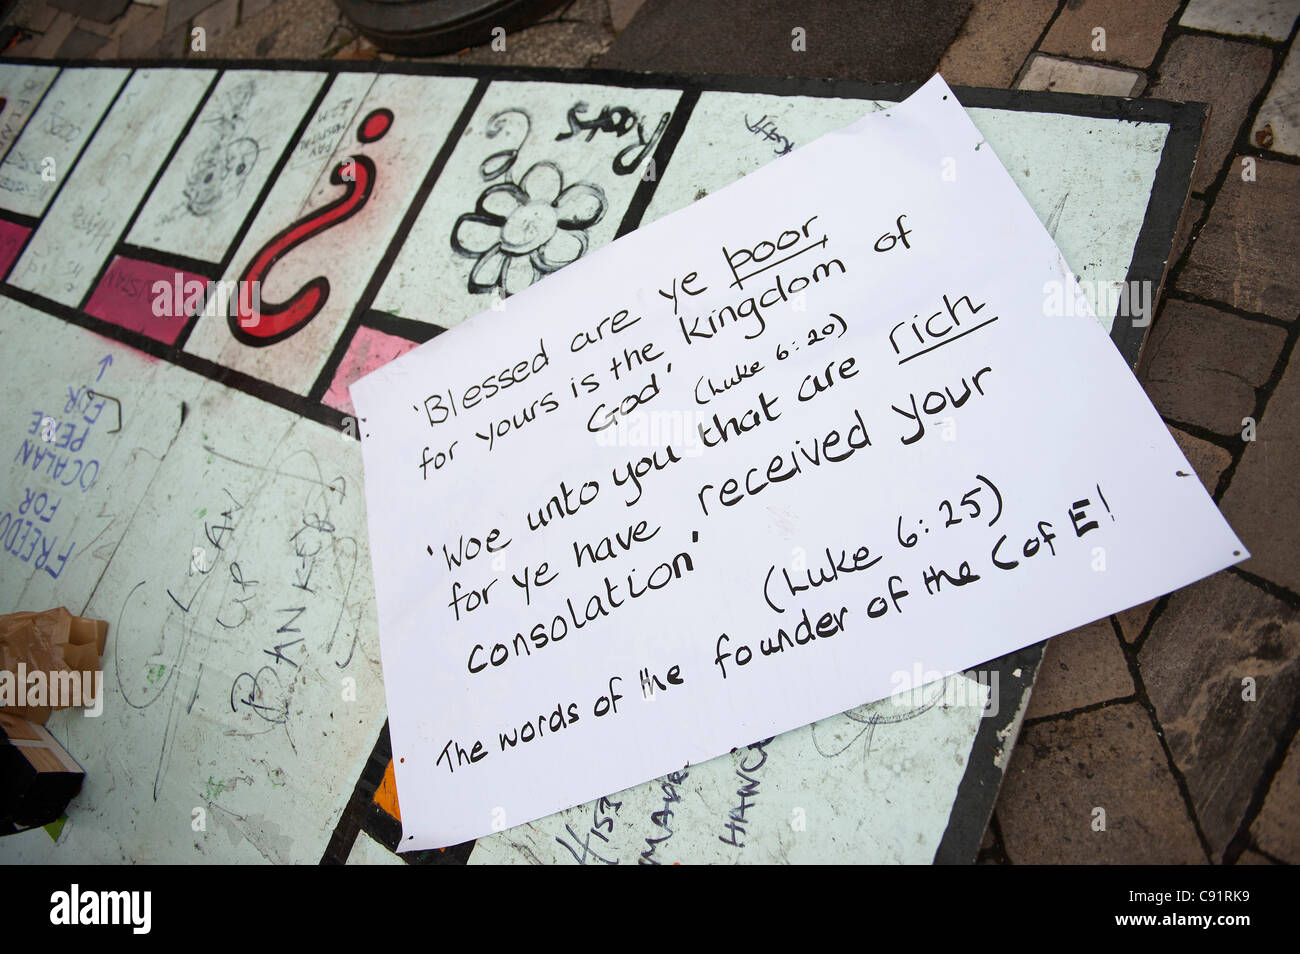 'Blessed are ye poor,
for yours is the kingdom of
God' (Luke 6:20)
'Woe unto you that are rich
for ye have received your
consolation'
(Luke 6:25)
The words of the founder of the C of E!
FREEDOM
FOR
OCALAN
PEACE
FOR
CLEAN
UP
BANKERS
PAY
alamy
Image ID: C91RK9
www.alamy.com